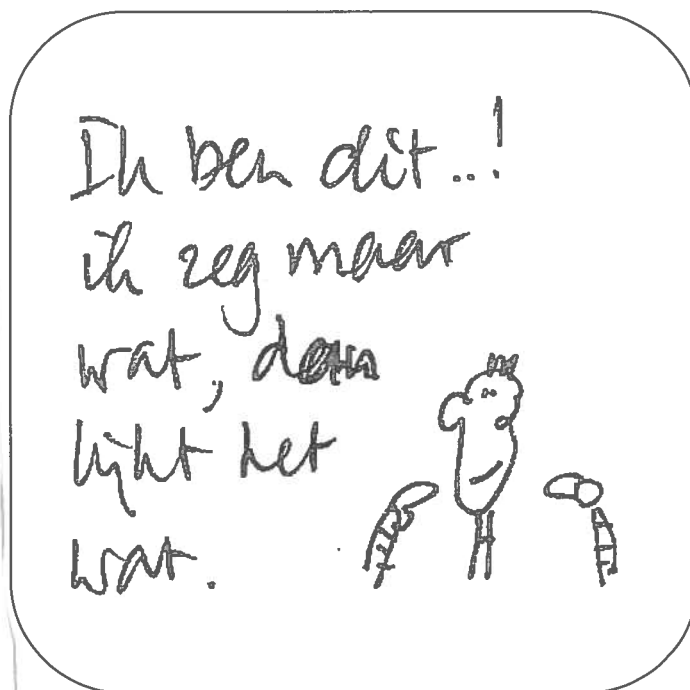 Ik ben dit...!
ik zeg maar
wat, dan
lijkt het
wat.